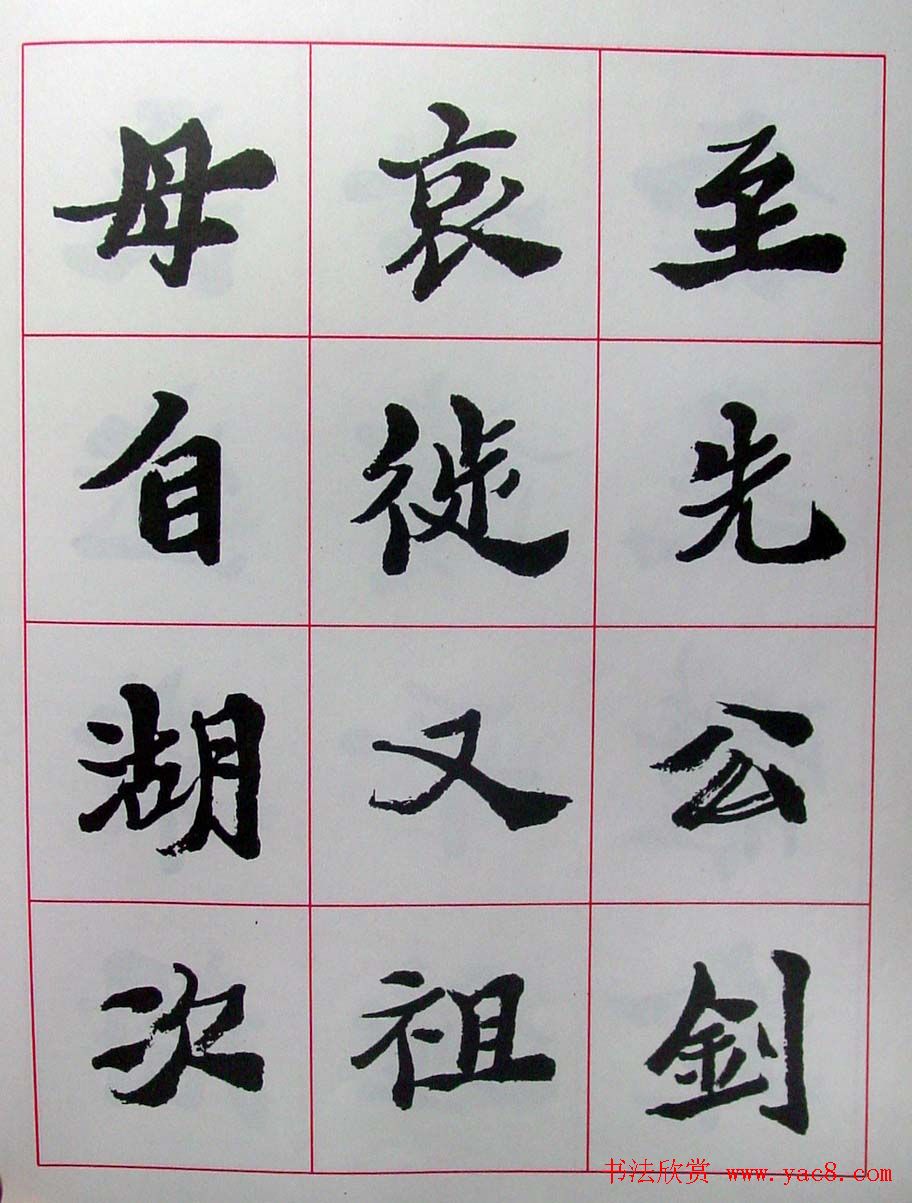 至先公釗
哀徙又祖
母自湖次
书法欣赏 www.yac8.com